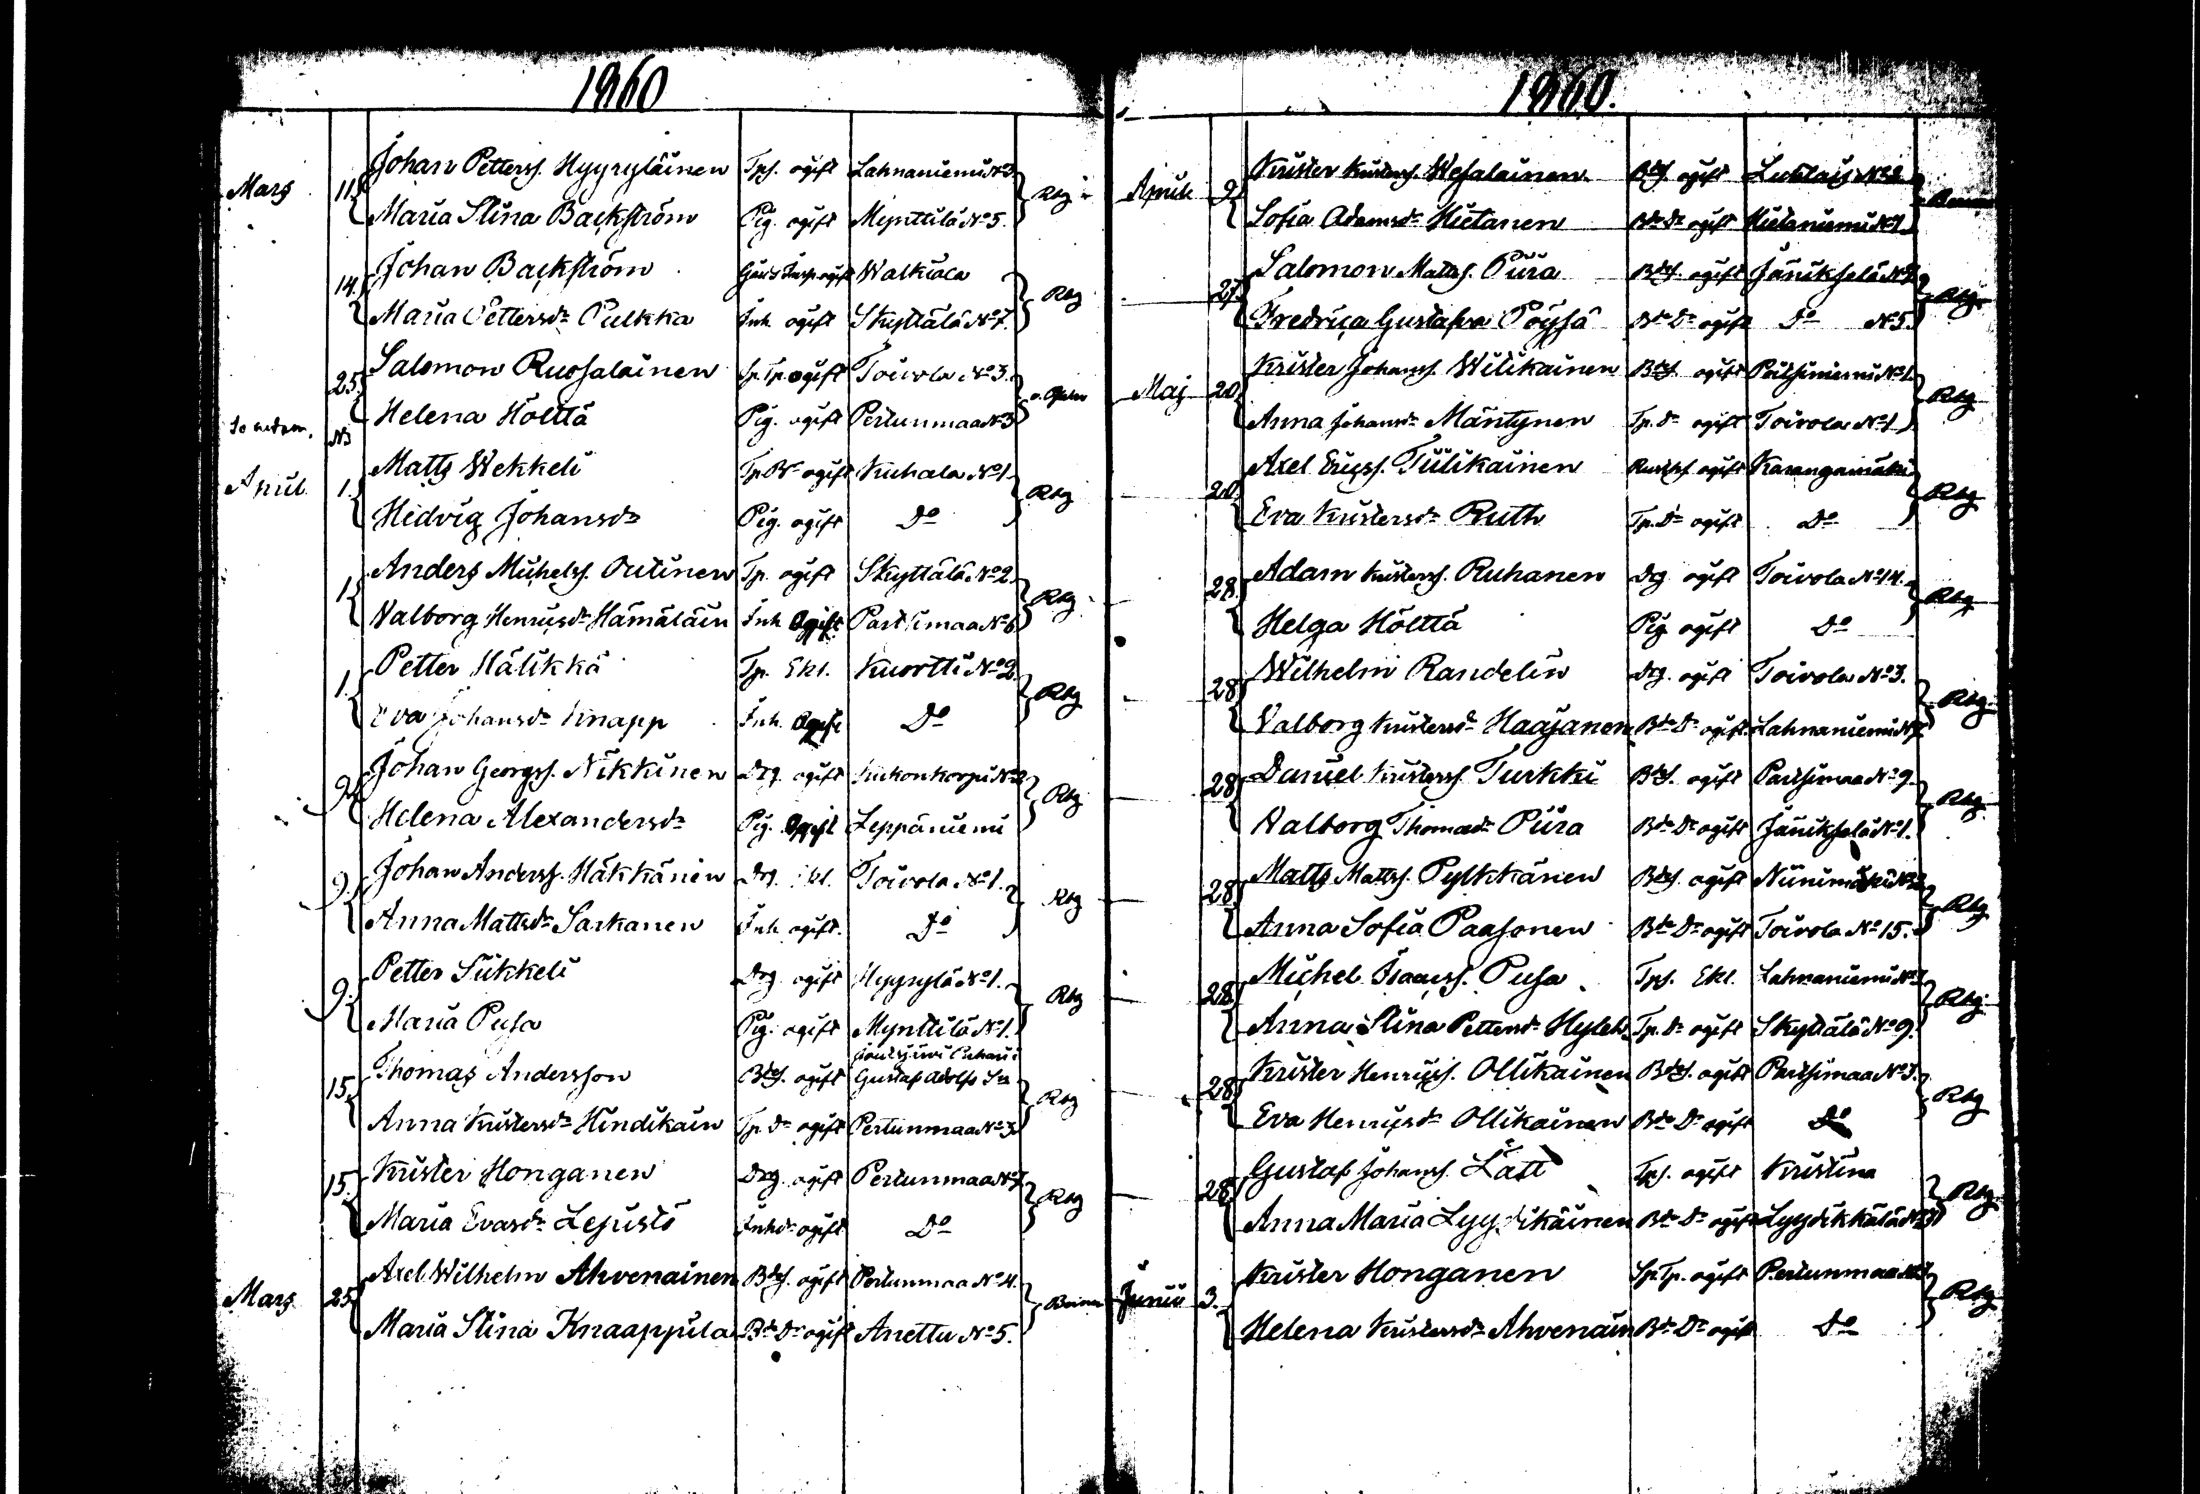 1860
Mars 11 Johan Petterss. Hyyryläinen Tps. ogift Lahnaniemi No 3
Maria Stina Backström Pig. ogift Mynttilä No 5. Rbg
14. Johan Backström ogift Walkiala
Maria Pettersdr Pulkka Inh. ogift Skyttälä No 7. Rbg
25. Salomon Ruossalainen Sp. Tp. ogift Toivola No 3.
Helena Hölttä Pig. ogift Pertunmaa No 3
April 1. Matts Wekkeli Tp. Br ogift Kuhala No 1.
Hedvig Johansdr Pig. ogift Do Rbg
1 Anders Michelss. Outinen Tp. ogift Skyttälä No 2.
Valborg Henricsdr Hämäläin Inh. ogift Partsimaa No 6 Rbg
1. Petter Hälikkä Tp. Ekl. Kuortti No 2.
Eva Johansdr Knapp Inh. ogift Do Rbg
9 Johan Georgss. Nikkinen Drg. ogift Kukonkorpi No 2
Helena Alexandersdr Pig. ogift Leppäniemi Rbg
9. Johan Anderss. Häkkänen Drg. Ekl. Toivola No 1.
Anna Mattsdr Sarkanen Inh. ogift. Do Rbg
9. Petter Sikkeli Drg. ogift Hyyrylä No 1.
Maria Pusa Pig. ogift Mynttilä No 1. Rbg
15. Thomas Andersson Bdes. ogift Gustaf Adolfs Sn
Anna Kristersdr Hindikain Tp. Dr ogift Pertunmaa No 3. Rbg
15. Krister Honganen Drg. ogift Pertunmaa No 7.
Maria Evasdr Lejusto Inhdr ogift Do Rbg
Mars 25. Axel Wilhelm Ahvenainen Bdes. ogift Pertunmaa No 4.
Maria Stina Knaappila Bde Dr ogift Anettu No 5.
1860.
April 9 Krister Kristerss. Wesalainen Bdes. ogift
Sofia Adamsdr Hietanen Bde Dr ogift Hietaniemi No 1.
27. Salomon Mattss. Piira Bdes. ogift Jäniksalo
Fredrica Gustafva Pöysä Bde Dr ogift Do No 5. Rbg
Maj 20. Krister Johanss. Wilikainen Bdes. ogift Paitsiniemi No 1.
Anna Johansdr Mäntynen Tp. Dr ogift Toivola No 1 Rbg
20. Axel Ericss. Tiilikainen ogift Karangamäki
Eva Kristersdr Ruth Tp. Dr ogift Do Rbg
28. Adam Kristerss. Ruhanen Drg ogift Toivola No 14.
Helga Hölttä Pig ogift Do Rbg
28. Wilhelm Randelin Drg. ogift Toivola No 3.
Valborg Kristersdr Haajanen Bde Dr ogift Lahnaniemi Rbg
28 Daniel Kristerss. Turkki Bdes. ogift Partsimaa No 9.
Valborg Thomasdr Piira Bde Dr ogift Jäniksalo No 1. Rbg
28. Matts Mattss. Pylkkänen Bdes. ogift Niinimäki
Anna Sofia Paasonen Bde Dr ogift Toivola No 15. Rbg
28. Michel Isaacss. Pusa Tps. Ekl. Lahnaniemi
Anna Stina Pettersdr Tp. Dr ogift Skyttälä No 9. Rbg
28. Krister Henricss. Ollikainen Bdes. ogift Partsimaa No 7.
Eva Henricsdr Ollikainen Bde Dr ogift Do Rbg
28. Gustaf Johanss. Lätt Tps. ogift Kristina
Anna Maria Lyydikäinen Bde Dr ogift Lyydikkälä Rbg
Junii 3. Krister Honganen Sp. Tp. ogift Pertunmaa
Helena Kristersdr Ahvenain Bde Dr ogift Do Rbg